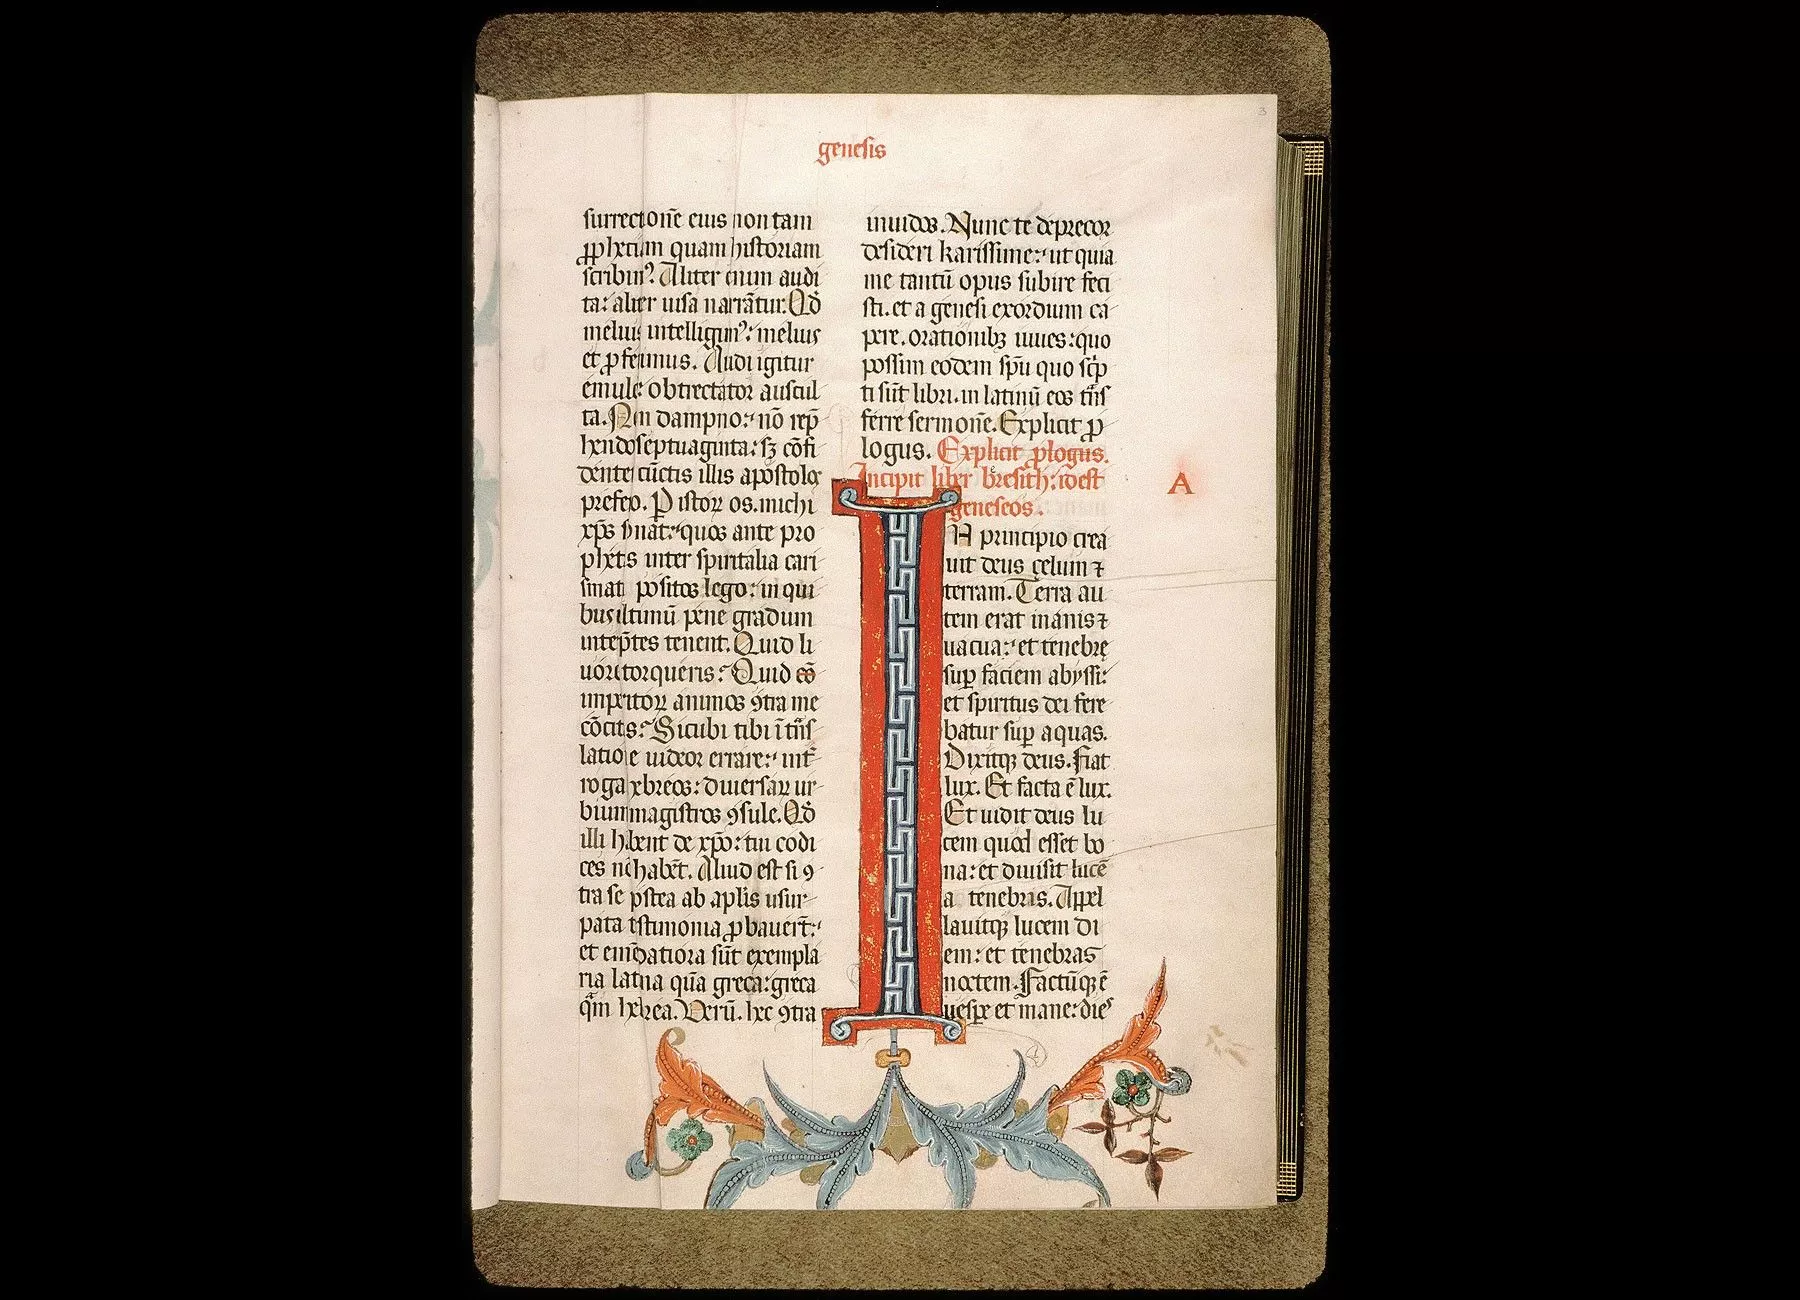 3
genesis
surrectionē eius non tam
ꝓphetiam quam historiam
scribim᷒? Aliter enim audi
ta: aliter uisa narrātur. Qd̕
melius intelligim᷒: melius
et ꝓferimus. Audi igitur
emule obtrectator auscul
ta. Non dampno: nō rep̄
hendo septuaginta: sꝫ cōfi
denter cūctis illis apostolos
prefero. P istoꝝ os michi
xp̄s sonat: quos ante pro
phetas inter spiritalia cari
smata positos lego: in qui
bus ultimū pene gradum
interp̄tes tenent. Quid li
uore torqueris? Quid
imperitoꝝ animos ꝯtra me
cōcitas? Sicubi tibi ī trās
latione uideor errare: int̄
roga hebreos: diuersaꝝ ur
bium magistros ꝯsule. Qd̕
illi habent de xp̄o: tui codi
ces nō habēt. Aliud est si ꝯ
tra se postea ab apl̄is usur
pata testimonia ꝓbauerīt:
et emēdatiora sūt exempla
ria latina quā greca: greca
qͣm hebrea. Verū. hec ꝯtra
inuidos. Nunc te deprecor
desideri karissime: ut quia
me tantū opus subire feci
sti. et a genesi exordium ca
pere. orationibꝫ iuues: quo
possim eodem sp̄u quo sc̄p
ti sūt libri. in latinū eos trās
ferre sermonē. Explicit ꝓ
logus. Explicit ꝓlogus.
Incipit liber bresith: idest
geneseos.
A
IN principio crea
uit deus celum ⁊
terram. Terra au
tem erat inanis ⁊
uacua: et tenebrę
suꝑ faciem abyssi:
et spiritus dei fere
batur suꝑ aquas.
Dixitqꝫ deus. Fiat
lux. Et facta ē lux.
Et uidit deus lu
cem quod esset bo
na: et diuisit lucē
a tenebras. Appel
lauitqꝫ lucem di
em: et tenebras
noctem. Factūqꝫ ē
uespe et mane: dies